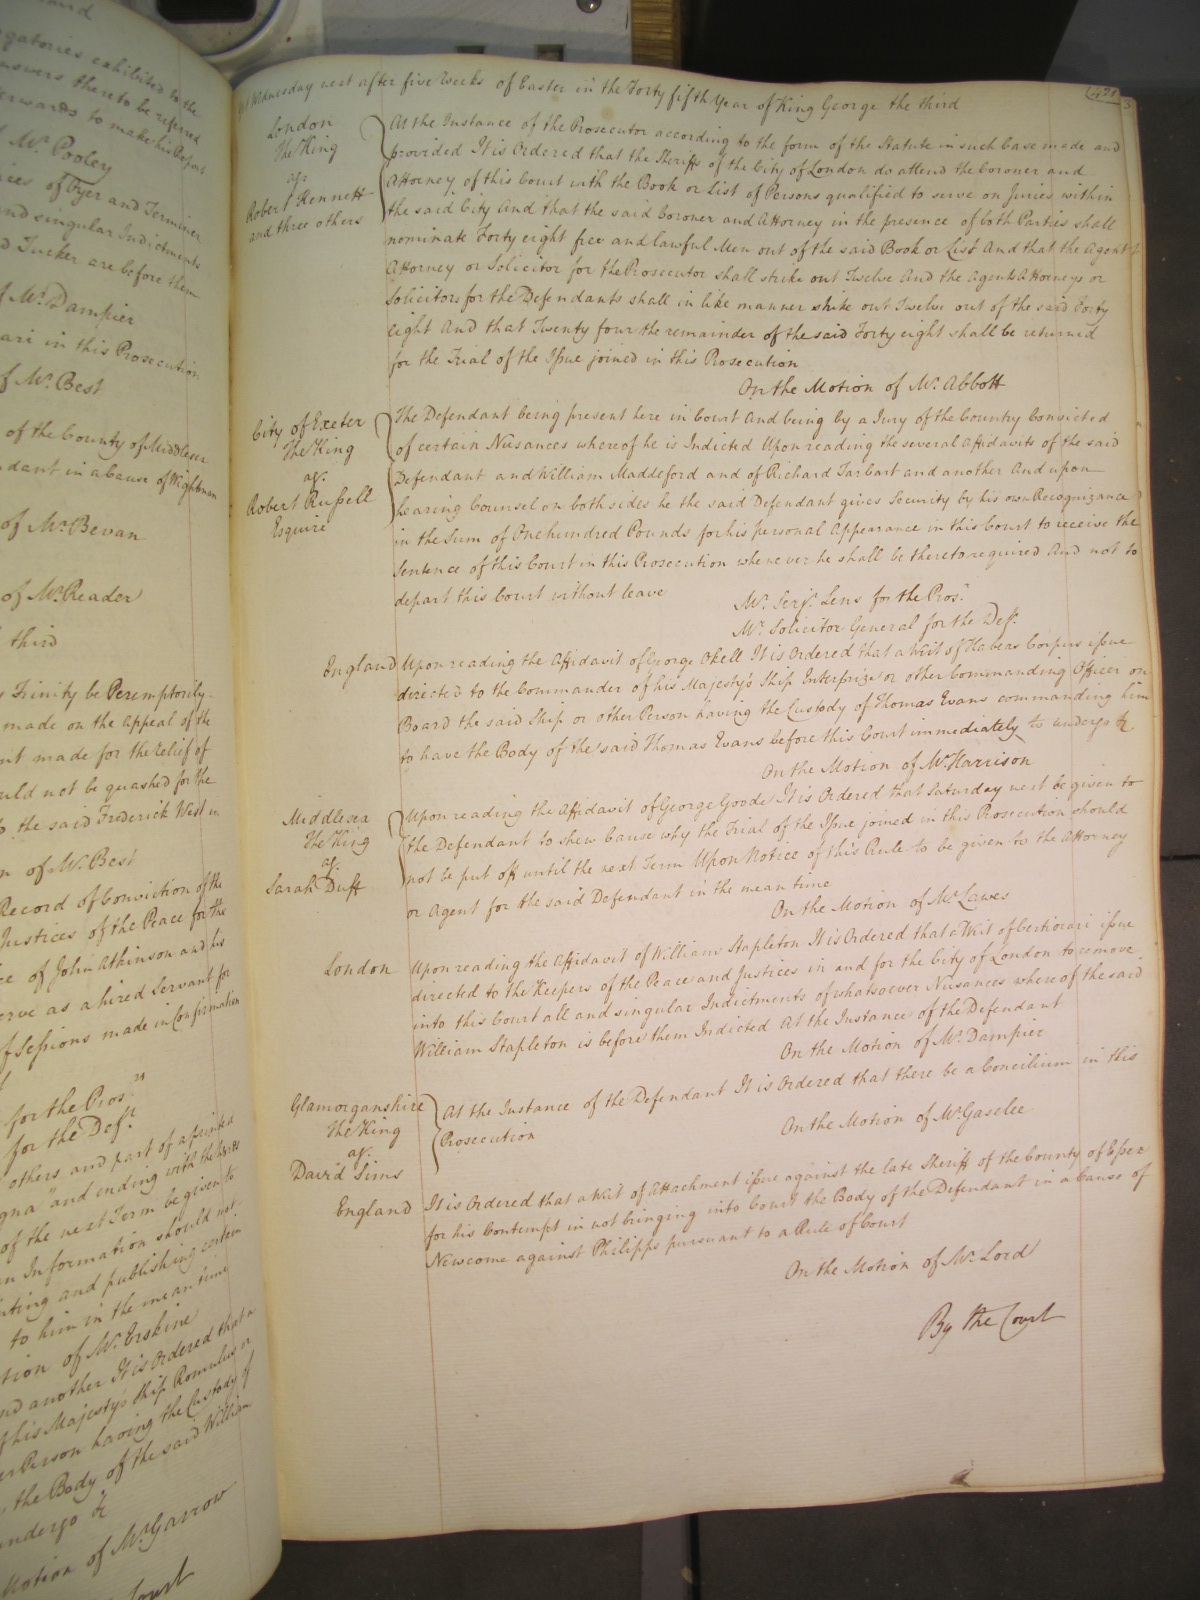 Wednesday next after five Weeks of Easter in the Forty fifth Year of King George the third
London
The King
agt
Robert Kennett
and three others
At the Instance of the Prosecutor according to the form of the Statute in such Case made and
provided It is Ordered that the Sheriffs of the City of London do attend the Coroner and
Attorney of this Court with the Book or List of Persons qualified to serve on Juries within
the said City And that the said Coroner and Attorney in the presence of both Parties shall
nominate Forty eight free and lawful Men out of the said Book or List And that the Agent
Attorney or Solicitor for the Prosecutor shall strike out Twelve And the Agents Attorneys or
Solicitors for the Defendants shall in like manner strike out Twelve out of the said Forty
eight And that Twenty four the remainder of the said Forty eight shall be returned
for the Trial of the Issue joined in this Prosecution
On the Motion of Mr. Abbott
City of Exeter
The King
agt.
Robert Russell
Esquire
The Defendant being present here in Court And being by a Jury of the Country Convicted
of certain Nusances whereof he is Indicted Upon reading the several Affidavits of the said
Defendant and William Maddeford and of Richard Tarbart and another And upon
hearing Counsel on both sides he the said Defendant gives Security by his own Recognizance
in the Sum of One hundred Pounds for his personal Appearance in this Court to receive the
Sentence of this Court in this Prosecution whenever he shall be thereto required And not to
depart this Court without leave
Mr. Serjt. Lens for the Prosr.
Mr. Solicitor General for the Deft.
England
Upon reading the Affidavit of George Okell It is Ordered that a Writ of Habeas Corpus issue
directed to the Commander of his Majesty's Ship Enterprize or other Commanding Officer on
Board the said Ship or other Person having the Custody of Thomas Evans commanding him
to have the Body of the said Thomas Evans before this Court immediately to undergo &c
On the Motion of Mr. Harrison
Middlesex
The King
agt.
Sarah Duff
Upon reading the Affidavit of George Goode It is Ordered that Saturday next be given to
the Defendant to shew Cause why the Trial of the Issue joined in this Prosecution should
not be put off until the next Term Upon Notice of this Rule to be given to the Attorney
or Agent for the said Defendant in the mean time
On the Motion of Mr. Lawes
London
Upon reading the Affidavit of William Stapleton It is Ordered that a Writ of Certiorari issue
directed to the Keepers of the Peace and Justices in and for the City of London to remove
into this Court all and singular Indictments of whatsoever Nusances whereof the said
William Stapleton is before them Indicted At the Instance of the Defendant
On the Motion of Mr. Dampier
Glamorganshire
The King
agt.
David Sims
At the Instance of the Defendant It is Ordered that there be a Concilium in this
Prosecution
On the Motion of Mr. Gaselee
England
It is Ordered that a Writ of Attachment issue against the late Sheriff of the County of Essex
for his Contempt in not bringing into Court the Body of the Defendant in a Cause of
Newcome against Philipps pursuant to a Rule of Court
On the Motion of Mr. Lord
By the Court
gatories exhibited to the
answers thereto be referred
to make his Report
Mr. Pooley
of Oyer and Terminer
and singular Indictments
Tucker are before them
Mr. Dampier
in this Prosecution
of Mr. Best
of the County of Middlesex
in a Cause of Wightman
of Mr. Bevan
of Mr. Reader
third
Trinity be Peremptorily
made on the Appeal of the
made for the relief of
not be quashed for the
the said Frederick West in
of Mr. Best
Record of Conviction of the
Justices of the Peace for the
of John Atkinson and his
serve as a hired Servant for
of Sessions made in Confirmation
for the Prosr.
for the Deft.
others and part of a printed
and ending with the words
of the next Term be given to
an Information should not
and publishing certain
to him in the mean time
of Mr. Erskine
and another It is Ordered that a
his Majesty's Ship Romulus or
Person having the Custody of
the Body of the said William
undergo &c
Motion of Mr. Garrow
Court